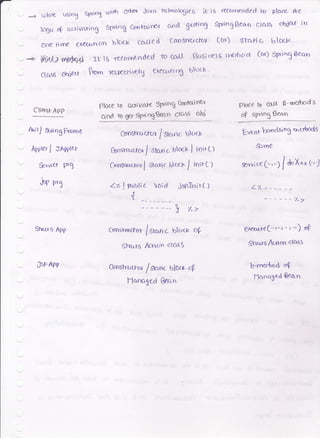 → while using Spring with other Java technologies it is recommended to place the
logic of activating Spring Container and getting SpringBean class object in
one time execution block called Constructor (or) static block.
→ It is recommended to call Business method (or) Spring Bean
class object from repeatedly executing block.
Client App
Place to activate Spring Container
and to get SpringBean class obj
Place to call B-methods
of spring Bean
Awt / Swing Frame
Constructor / static block
Event handling methods
Applet / JApplet
Constructor / static block / init( )
Same
Servlet prg
Constructor / static block / init( )
service(-,-) / doXxx(-,-)
Jsp prg
<%! public void jspInit( )
{
- - - - - - -
- - - - - - - } %>
<% - - - - -
- - - - - %>
Struts App
Constructor / static block of
Struts Action class
execute(-,-,-,-) of
Struts Action class
JSF App
Constructor / static block of
Managed Bean
b-method of
Managed Bean